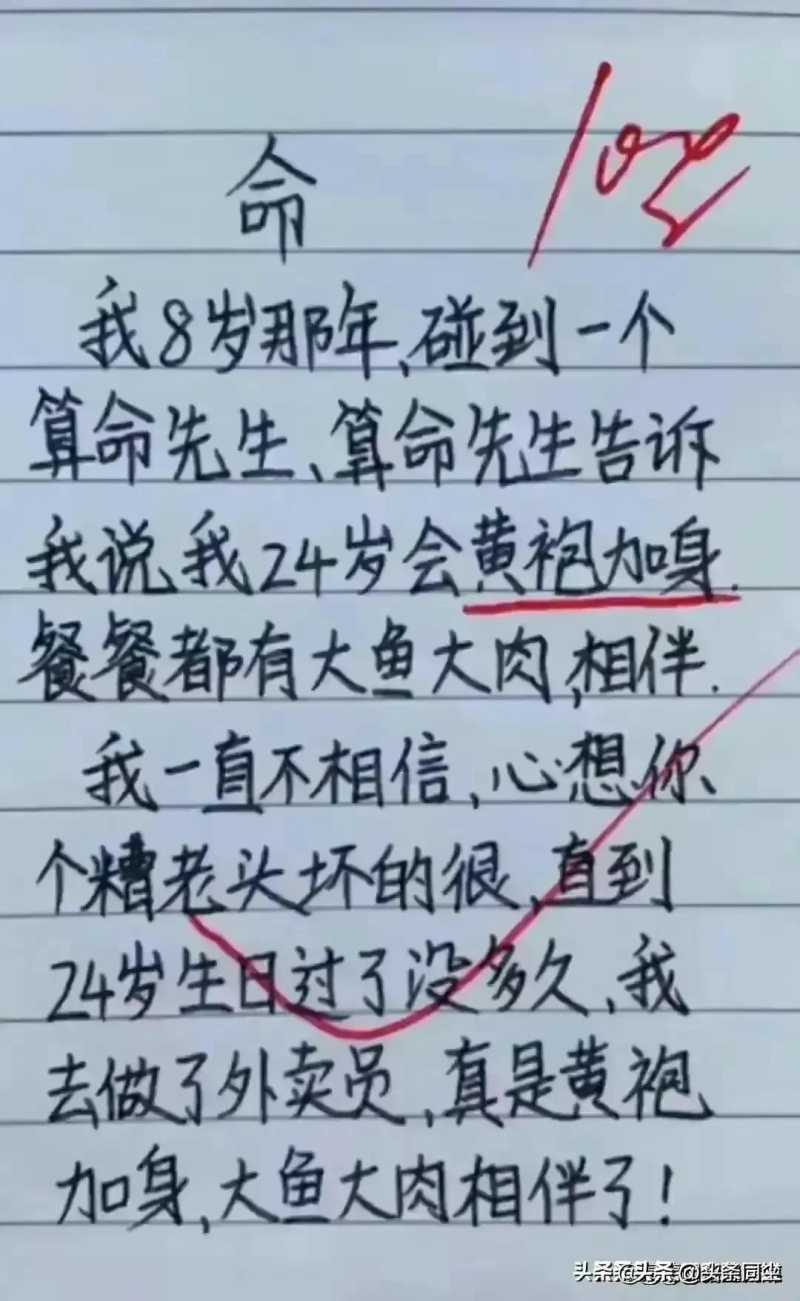 命
我8岁那年,碰到一个
算命先生、算命先生告诉
我说我24岁会黄袍加身.
餐餐都有大鱼大肉,相伴.
我一直不相信,心想你、
个糟老头坏的很,直到
24岁生日过了没多久,我
去做了外卖员,真是黄袍
加身,大鱼大肉相伴了!